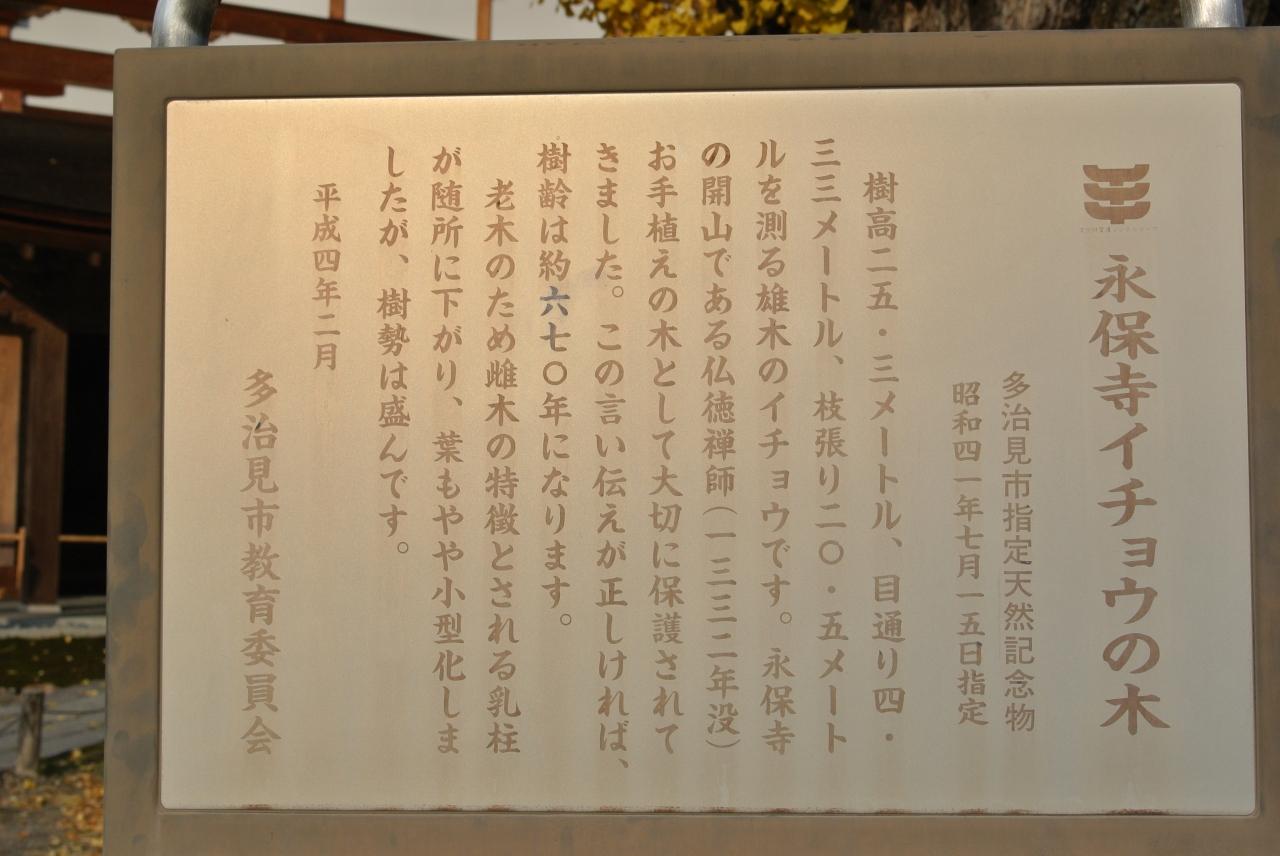 永保寺イチョウの木
多治見市指定天然記念物
昭和四一年七月一五日指定
樹高二五・三メートル、目通り四・
三三メートル、枝張り二〇・五メート
ルを測る雄木のイチョウです。永保寺
の開山である仏徳禅師（一三三二年没）
お手植えの木として大切に保護されて
きました。この言い伝えが正しければ、
樹齢は約六七〇年になります。
老木のため雌木の特徴とされる乳柱
が随所に下がり、葉もやや小型化しま
したが、樹勢は盛んです。
平成四年二月
多治見市教育委員会